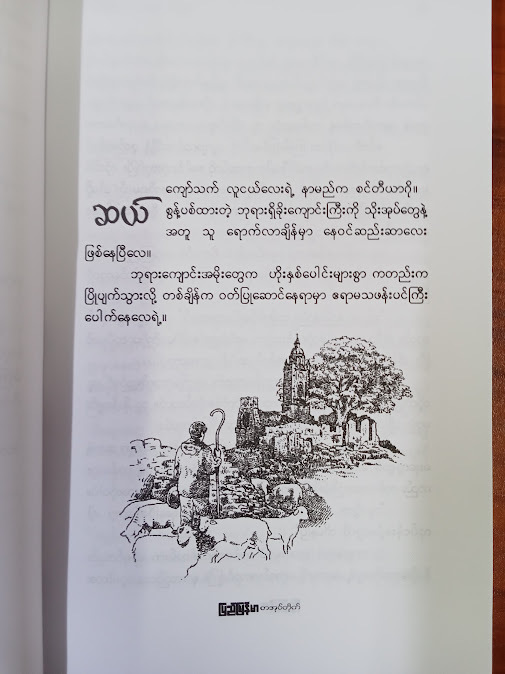 ဆယ်
ကျော်သက် လူငယ်လေးရဲ့ နာမည်က စင်တီယာဂို။
စွန့်ပစ်ထားတဲ့ ဘုရားရှိခိုးကျောင်းကြီးကို သိုးအုပ်တွေနဲ့
အတူ သူ ရောက်လာချိန်မှာ နေဝင်ဆည်းဆာလေး
ဖြစ်နေပြီလေ။
ဘုရားကျောင်းအမိုးတွေက ဟိုးနှစ်ပေါင်းများစွာ ကတည်းက
ပြိုပျက်သွားလို့ တစ်ချိန်က ဝတ်ပြုဆောင်နေရာမှာ ဧရာမသဖန်းပင်ကြီး
ပေါက်နေလေရဲ့။
ပြည်မြန်မာ စာအုပ်တိုက်